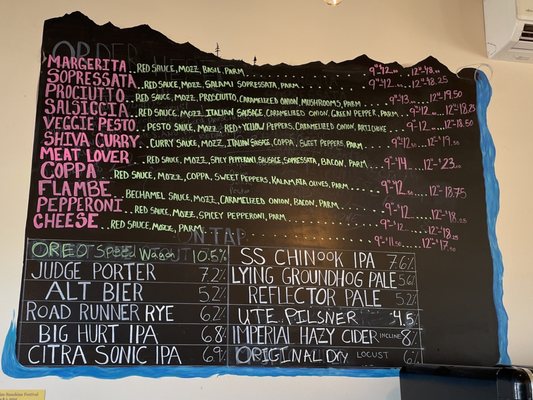 ORDER
MARGERITA .. RED SAUCE, MOZZ, BASIL, PARM 9"-$12 12"-$18
SOPRESSATA .. RED SAUCE, MOZZ, SALAMI SOPRESSATA, PARM 9"-$12 12"-$18.25
PROCIUTTO .. RED SAUCE, MOZZ, PROSCIUTO, CARAMELIZED ONION, MUSHROOMS, PARM 9"-$13 12"-$19.50
SALSICCIA .. RED SAUCE, MOZZ, ITALIAN SAUSAGE, CARAMELIZED ONION, GREEN PEPPER, PARM 9"-$12 12"-$18.25
VEGGIE PESTO .. PESTO SAUCE, MOZZ, RED+YELLOW PEPPERS, CARAMELIZED ONION, ARTICHOKE 9"-$12 12"-$18.50
SHIVA CURRY .. CURRY SAUCE, MOZZ, ITALIAN SAUSAGE, COPPA, SWEET PEPPERS, PARM 9"-$12 12"-$19
MEAT LOVER .. RED SAUCE, MOZZ, SPICY PEPPERONI, SAUSAGE, SOPRESSATA, BACON, PARM 9"-$14 12"-$23
COPPA .. RED SAUCE, MOZZ, COPPA, SWEET PEPPERS, KALAMATA OLIVES, PARM 9"-$12 12"-$18.75
FLAMBE .. BECHAMEL SAUCE, MOZZ, CARAMELIZED ONION, BACON, PARM 9"-$12 12"-$18
PEPPERONI .. RED SAUCE, MOZZ, SPICEY PEPPERONI, PARM 9"-$12 12"-$18.25
CHEESE .. RED SAUCE, MOZZ, PARM 9"-$11.50 12"-$17.50
ON TAP
OREO Speed Wagon 10.5%
JUDGE PORTER 7.2%
ALT BIER 5.2%
ROAD RUNNER RYE 6.2%
BIG HURT IPA 6.8%
CITRA SONIC IPA 6.9%
SS CHINOOK IPA 7.6%
LYING GROUNDHOG PALE 5.6%
REFLECTOR PALE 5.2%
UTE PILSNER 4.5%
IMPERIAL HAZY CIDER INCLINE 8%
ORIGINAL DRY LOCUST 6%